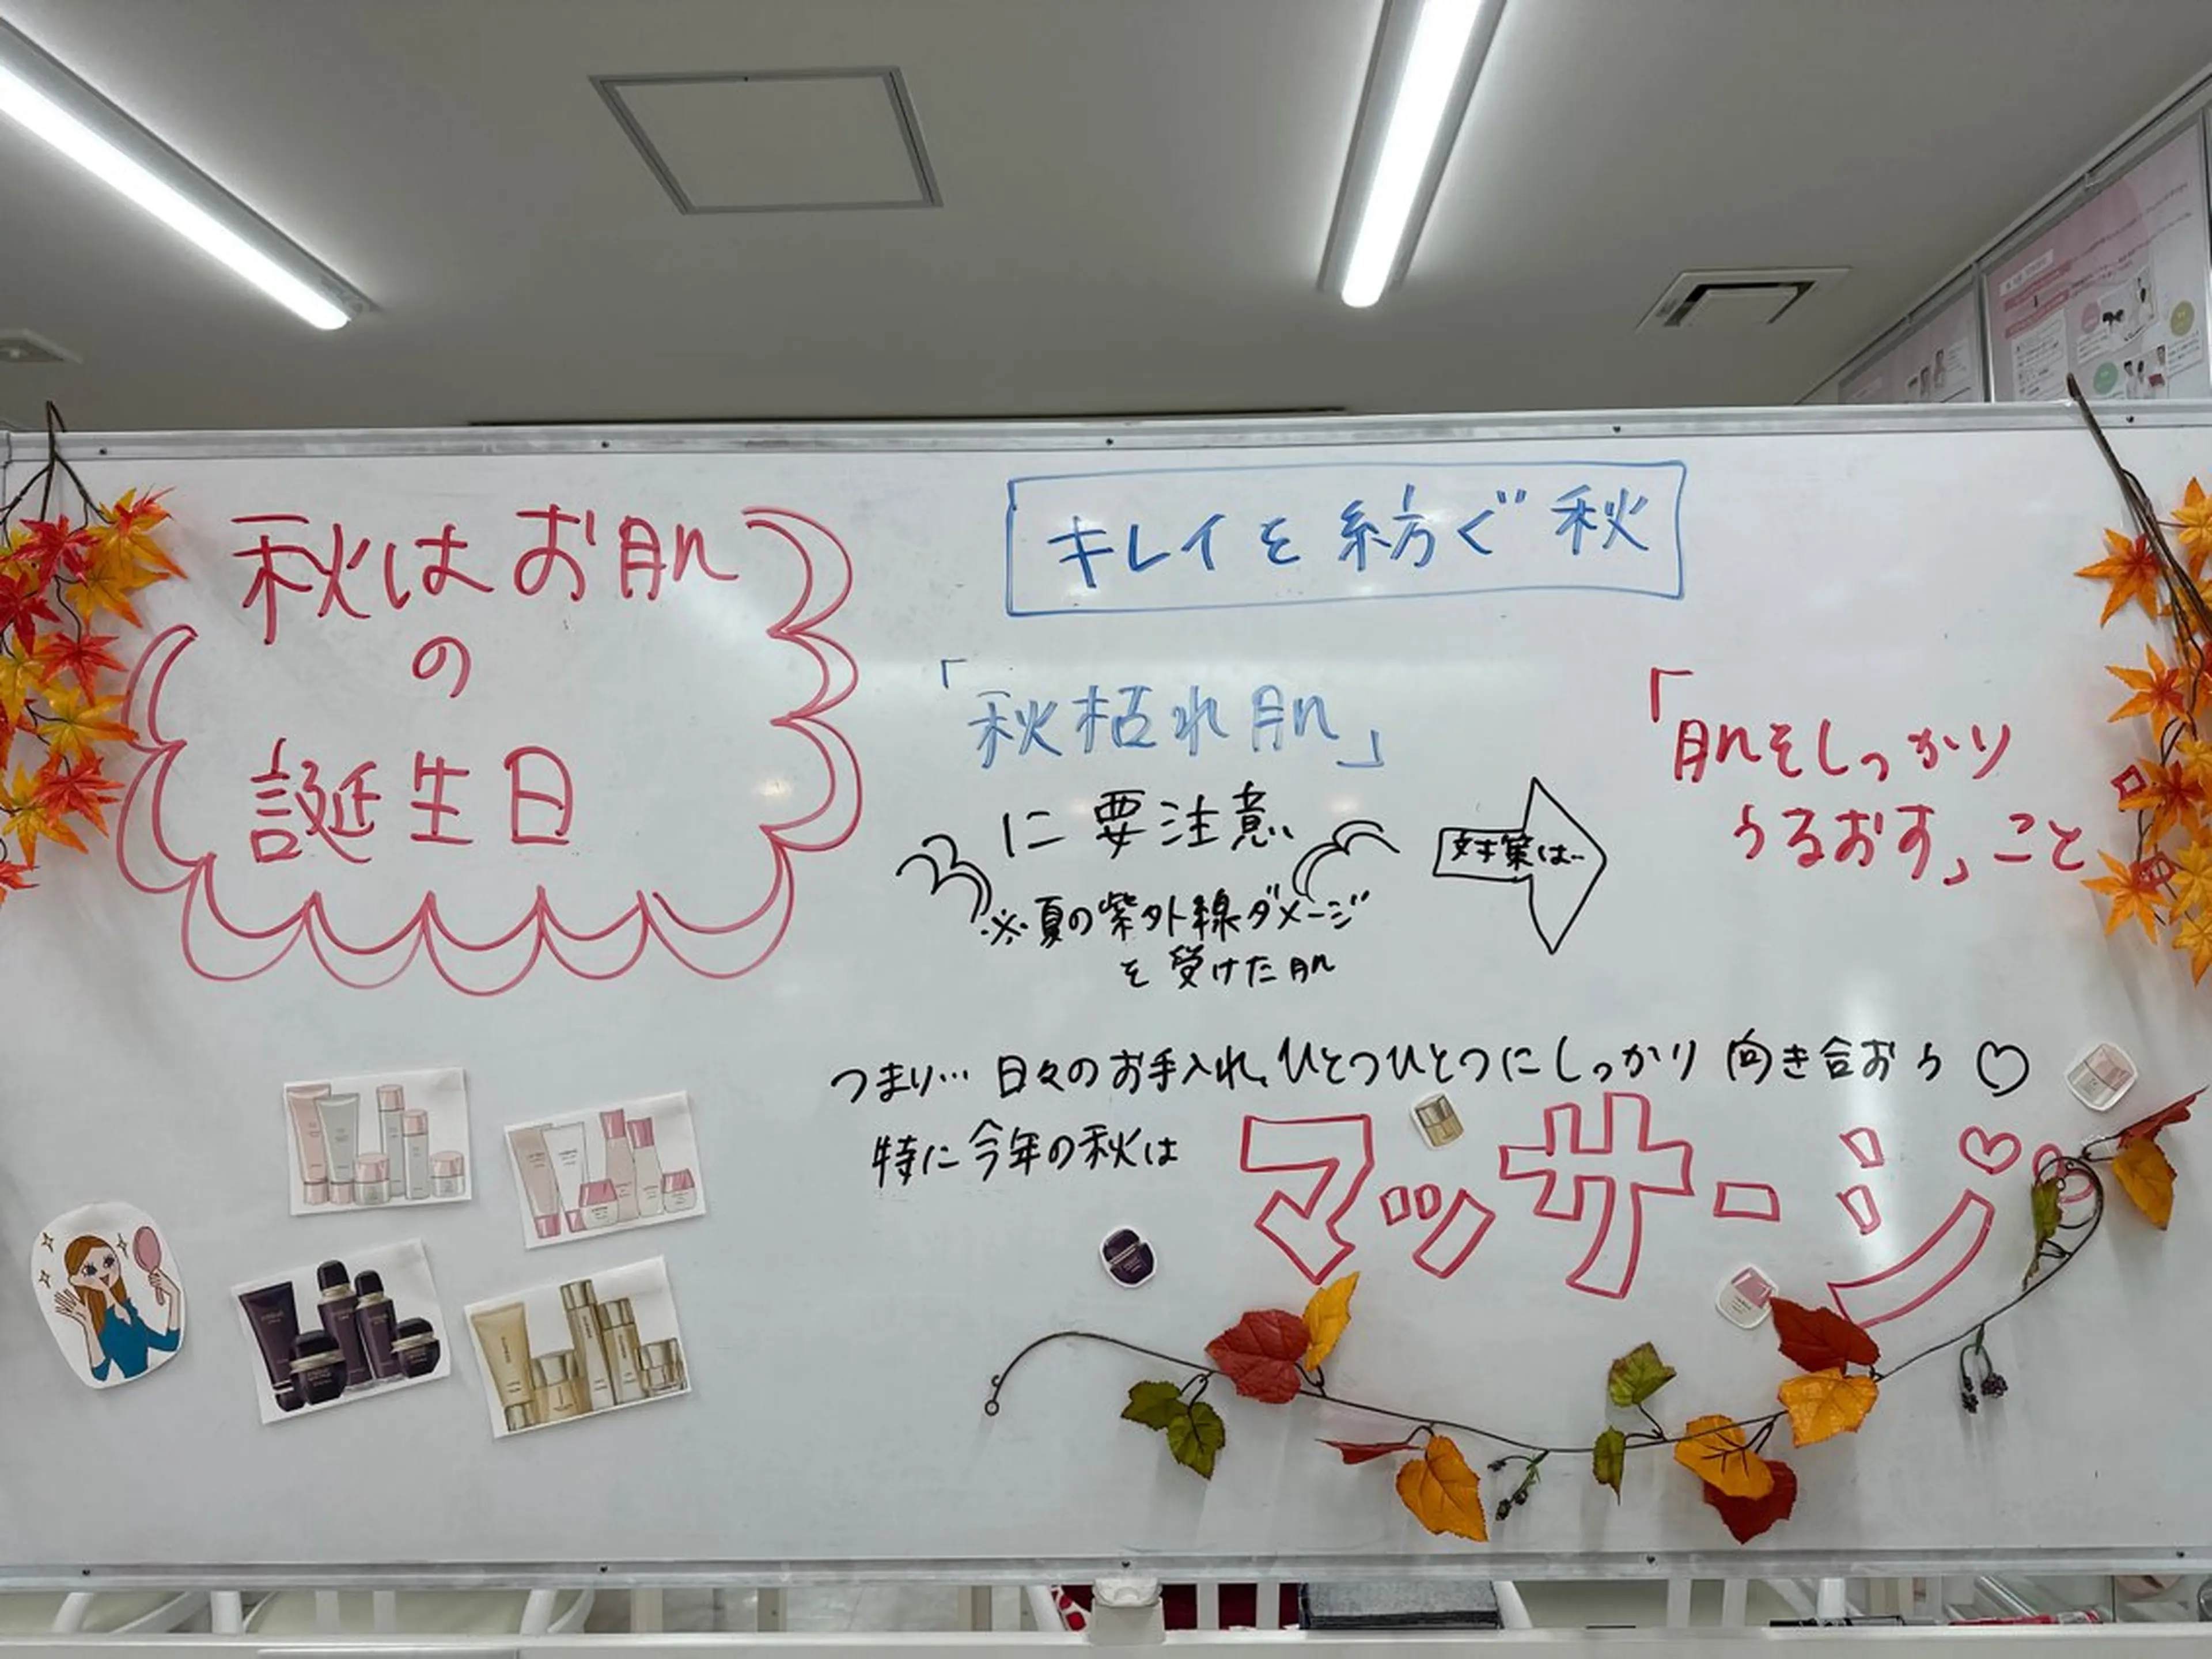 秋はお肌
の
誕生日
キレイを紡ぐ秋
「秋枯れ肌」
に要注意
※夏の紫外線ダメージ
を受けた肌
対策は…
「肌をしっかり
うるおす」こと
つまり… 日々のお手入れ、ひとつひとつにしっかり 向き合おう♡
特に今年の秋は
マッサージ♡